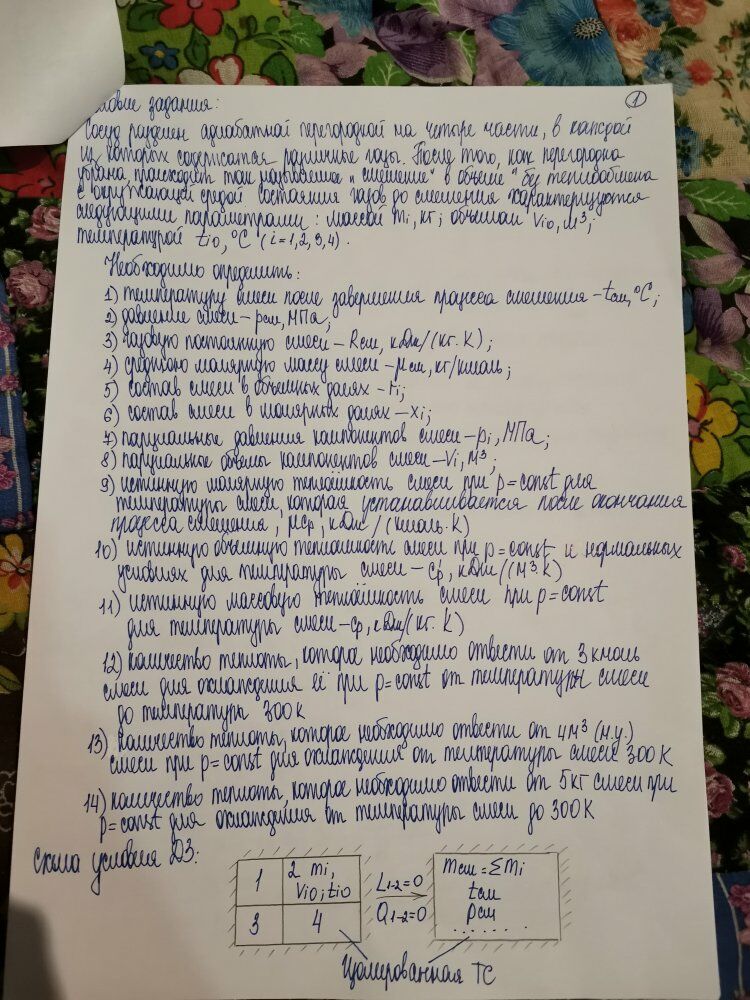 ①
словие задания:
Сосуд разделен адиабатной перегородкой на четыре части, в каждой
из которых содержатся различные газы. После того, как перегородка
убрана происходит так называемое „смешение“ в объеме" без теплообмена
с окружающей средой состояния газов до смешения характеризуются
следующими параметрами: массой mi, кг; объемом Vio, м³;
температурой tio, °C (i=1,2,3,4).
Необходимо определить:
1) температуру смеси после завершения процесса смешения - tсм, °C;
2) давление смеси - pсм, МПа;
3) газовую постоянную смеси - Rсм, кДж/(кг.К);
4) среднюю молярную массу смеси - μсм, кг/кмоль;
5) состав смеси в объемных долях - ri;
6) состав смеси в молярных долях - xi;
7) парциальные давления компонентов смеси - pi, МПа;
8) парциальные объемы компонентов смеси - Vi, м³;
9) истинную молярную теплоёмкость смеси при p=const для
температуры смеси, которая устанавливается после окончания
процесса смешения, μcp, кДж/(кмоль.К)
10) истинную объемную теплоемкость смеси при p=const и нормальных
условиях для температуры смеси - c'p, кДж/(м³К)
11) истинную массовую теплоёмкость смеси при p=const
для температуры смеси - cp, кДж/(кг. К)
12) количество теплоты, которое необходимо отвести от 3 кмоль
смеси для охлаждения её при p=const от температуры смеси
до температуры 300К
13) количество теплоты, которое необходимо отвести от 4м³ (н.у.)
смеси при p=const для охлаждения от температуры смеси 300К
14) количество теплоты, которое необходимо отвести от 5кг смеси при
p=const для охлаждения от температуры смеси до 300К
схема условия ДЗ:
1 2 mi, Vio; tio
3 4
L1-2=0
Q1-2=0
mсм=Σmi
tсм
pсм
. . . . . .
Изолированная ТС